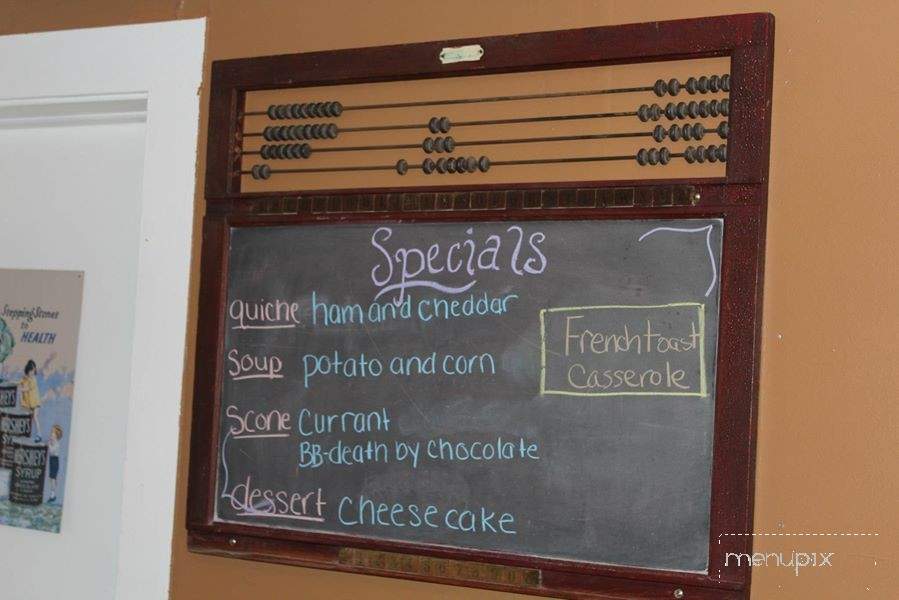 Specials
quiche ham and cheddar
Soup potato and corn
Scone Currant
BB-death by chocolate
dessert Cheesecake
French toast
Casserole
Stepping Stones
to
HEALTH
HERSHEY'S
SYRUP
HERSHEY'S
SYRUP
menupix